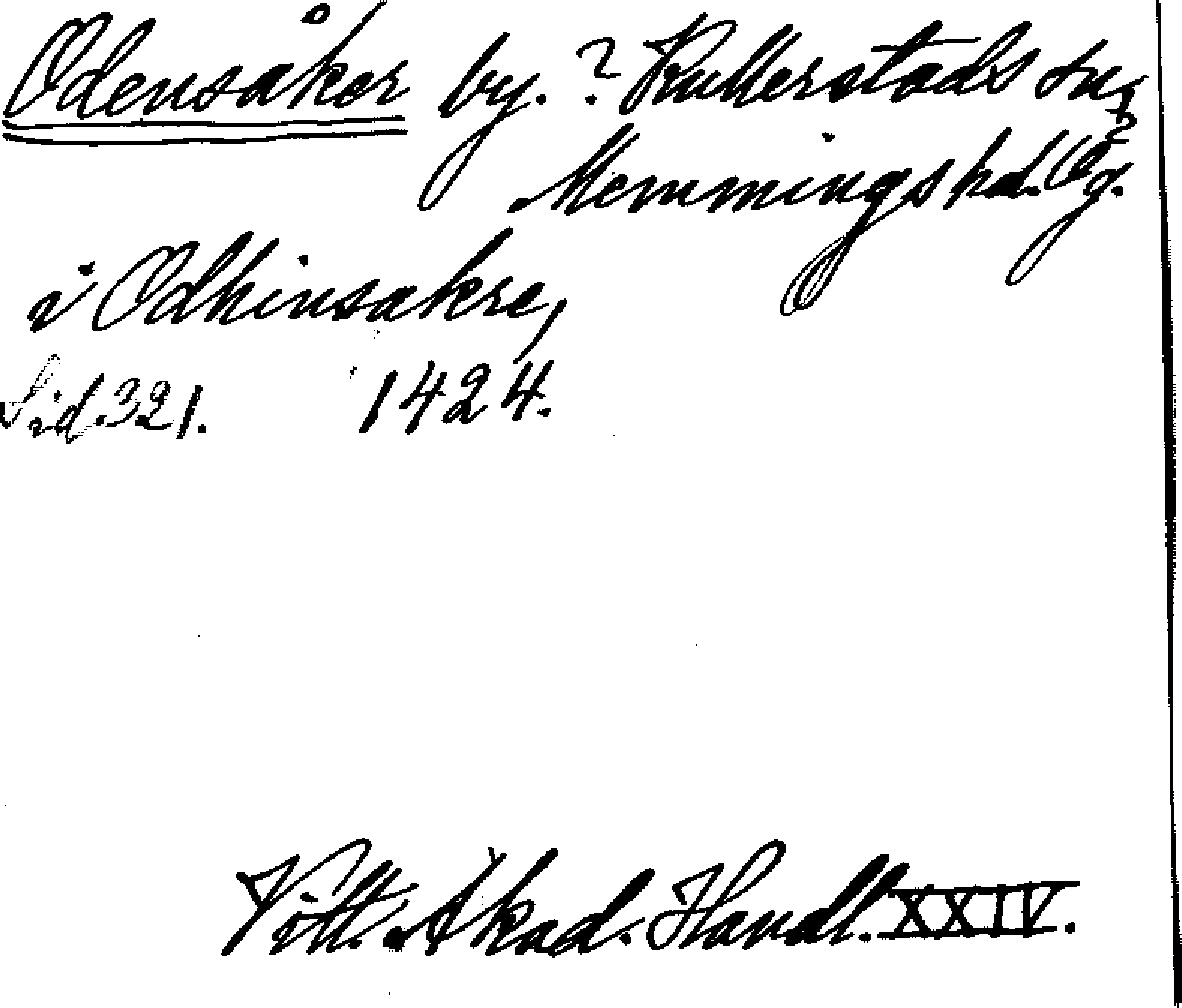 Odensåker by. ? Kullerstads sn,
Memmings hd. Ög.
i Odhinsakre,
Sid. 321. 1424.
Vitt. Akad. Handl. XXIV.